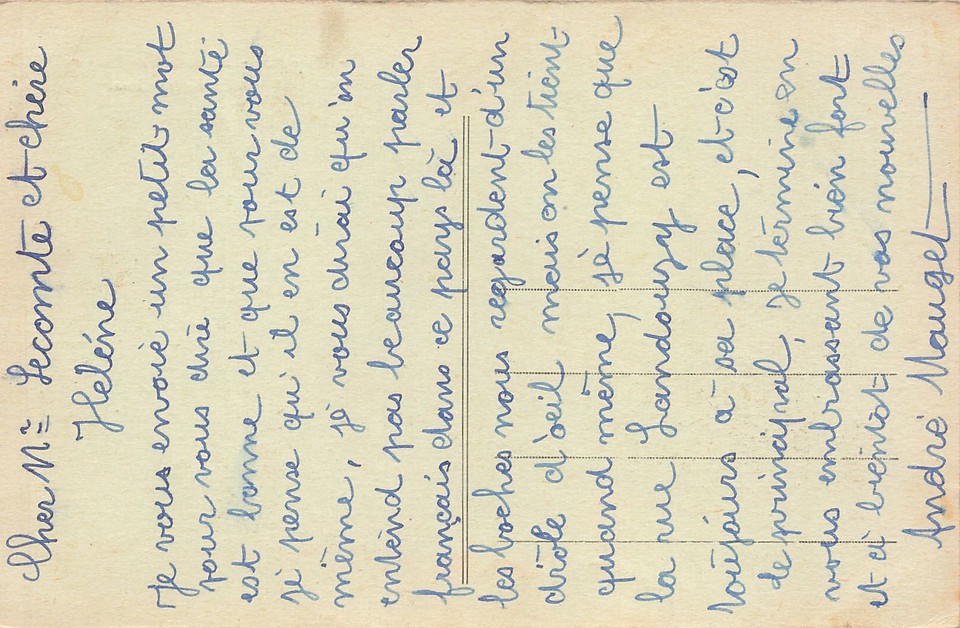 Cher Mr Lecomte et chère
Hélène
Je vous envoie un petit mot
pour vous dire que la santé
est bonne et que pour vous
je pense qu'il en est de
même, je vous dirai qu'on
entend pas beaucoup parler
français dans ce pays là et
les boches nous regardent d'un
drôle d'oeil mais on les tient
quand même, je pense que
la rue Landouzy est
toujours à sa place, et c'est
le principal, je termine en
vous embrassant bien fort
et à bientôt de vos nouvelles
André Mauget